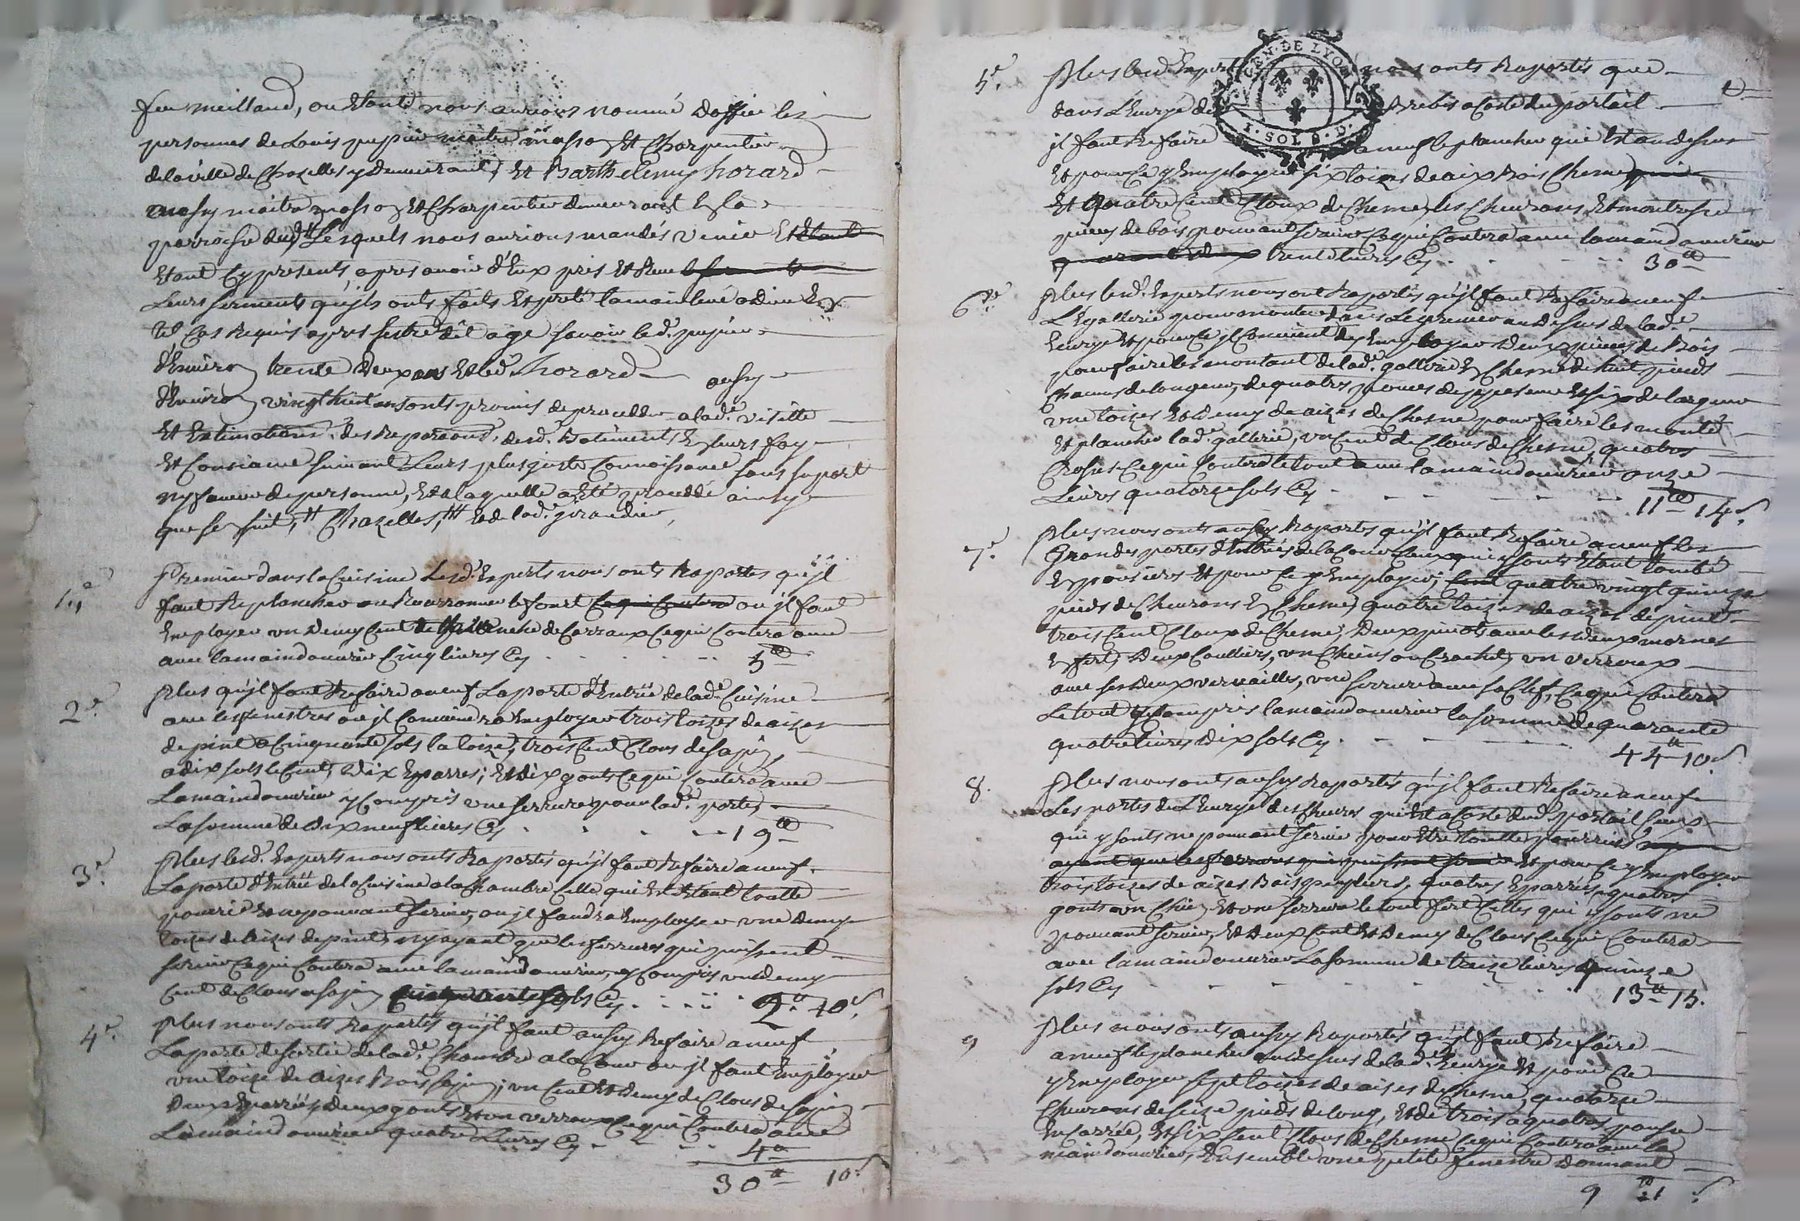 feu meilland, ou Etant nous aurions nommé d'office les
personnes de Louis pupier maitre masson Et Charpentier
de la ville de Chazelles y Demeurant, Et Barthelemy horard
aussy maitre masson Et Charpentier demeurant En la
parroisse dud. Lesquels nous aurions mandés venir Et Etant
Etant Cy presents apres avoir d'Eux pris Et Receu
Leurs serments qu'ils ont faits Et preté la main levé a dieu En
tel Cas Requis apres s'estre dit agé savoir led. pupier
d'Environ trente deux ans Et led. horard aussy
d'Environ vingt huit ans ont promis de proceder a lad. visitte
Et Estimations des Reparaons desd. Batiments En leurs foy
Et Consiance suivant Leurs plus juste Connoissance sans suport
ny faveur de personne, Et a laquelle a Eté procedé ainsy
que se suit, Chazelles, Et de lad. girandier
1.º Premier dans la Cuisine Lesd. Experts nous onts Raportés qu'il
faut Replancher ou Rourronner le fourt Ce qui Contera ou il faut
Employer un Demy Cent de planche de Carraux Ce qui Contera avec
avec la maind'ouvrier Cinq livres Cy 5tt
2.e Plus qu'il faut Refaire a neuf La porte d'Entrée de lad. Cuisine
avec les fenestres ou il Conviendra Employer trois toizes de aizes
de pint a Cinquante sols la toize, trois Cent Clous de sapin
a dix sols le Cent, Dix Eparres, Et Dix gonts Ce qui Contera avec
La maind'ouvrier y Compris une serrure pour lad. porte,
La somme de Dix neuf livres Cy 19tt
3.e Plus lesd. Experts nous onts Raportés qu'il faut Refaire a neuf
La porte d'Entrée de la Cuisine a la Chambre Celle qui Est Etant toutte
pourrie Et ne pouvant servir, ou il faudra Employer une Demy
toizes de aizes de pint, n'y ayant que les ferrures qui puissent
servir Ce qui Contera avec la maind'ouvrier, y Compris un demy
Cent de Clous a sapin Cinquante sols Cy 2tt 10s
4.e Plus nous onts Raportés qu'il faut aussy Refaire a neuf
La porte de sortie de lad. Chambre a la Cour ou il faut Employer
une toize de aizes Bois sapin, un Cent Et Demy de Clous de sapin
Deux Eparres, Deux gonts Et un verroux Ce qui Contera avec
La maind'ouvrier quatre Livres Cy 4tt
30tt 10s
5.e Plus lesd. Experts nous onts Raportés que
dans L'Eurye des Brebis a Coste du portail
il faut Refaire a neuf le plancher qui Est au dessus
Et pour Ce y Employer six toizes de aix Bois Chesne
Et Quatre Cent Cloux de Chesne, les Chevrons Et montresse
pieces de bois pouvant servir Ce qui Contera avec la maind'ouvrier
trente livres Cy 30tt
6.e Plus lesd. Experts nous ont Raportés qu'il faut Refaire a neuf
L'Egallerie pour monter dans Le premier au Dessus de lad.
Eurye Et pour Ce il Convient d'y Employer Deux pieces de Bois
pour faire les montant de lad. gallerie En Chesne de huit pieds
Chacuns de longeur, de quatre pouces d'epesseur Et six de largeur
une toizes Et Demy de aizes de Chesne pour faire les montés
Et plancher lad. gallerie, un Cent de Clous de Chesne, quatre
Crosses Ce qui Contera le tout avec la maind'ouvrier onze
Livres quatorze sols Cy 11tt 14s
7.e Plus nous onts aussy Raportés qu'il faut Refaire a neuf les
Grandes portes d'Entrées de la Cour Ceux qui y sonts Etant tombé
En poussiere Et pour Ce y Employer, Cent quatre vingt quinze
pieds de Chevrons En Chesne, quatre toizes de aizes de pint
trois Cent Cloux de Chesne, Deux pivots avec les deux mornes
En fert, Deux Colliers, un Chien ou Crochet, un verroux
avec ses Deux vervailles, une serrure avec sa Clef, Ce qui Contera
Le tout y Compris la maind'ouvrier la somme de quarante
quatre livres Dix sols Cy 44tt 10s
8. Plus nous onts aussy Raportés qu'il faut Refaire a neuf
Les portes de L'Eurye des qui Est a Coste dud. portail Ceux
qui y sonts ne pouvant servir pour Etre touttes pourries
ayant que les ferrures qui puissent servir Et pour Ce y Employer
trois toizes de aizes Bois peupliers, quatre Eparres, quatre
gonts un Chien, Et une serrure le tout fert Celles qui y sonts ne
pouvant servir, Et Deux Cent Et Demy de Clous Ce qui Contera
avec la maind'ouvrier La somme de treize livres quinze
sols Cy 13tt 15.
9 Plus nous onts aussy Raportés qu'il faut Refaire
a neuf le plancher au dessus de lad. Eurye Et pour Ce
y Employer sept toizes de aizes de Chesne, quatorze
Chevrons de seize pieds de long, Et de trois a quatre pouces
En Carrée, Et six Cent Clous de Chesne Ce qui Contera avec la
maind'ouvrier, Ensemble une petite fenestre Donnant
GEN. DE LYON
SOLS D.